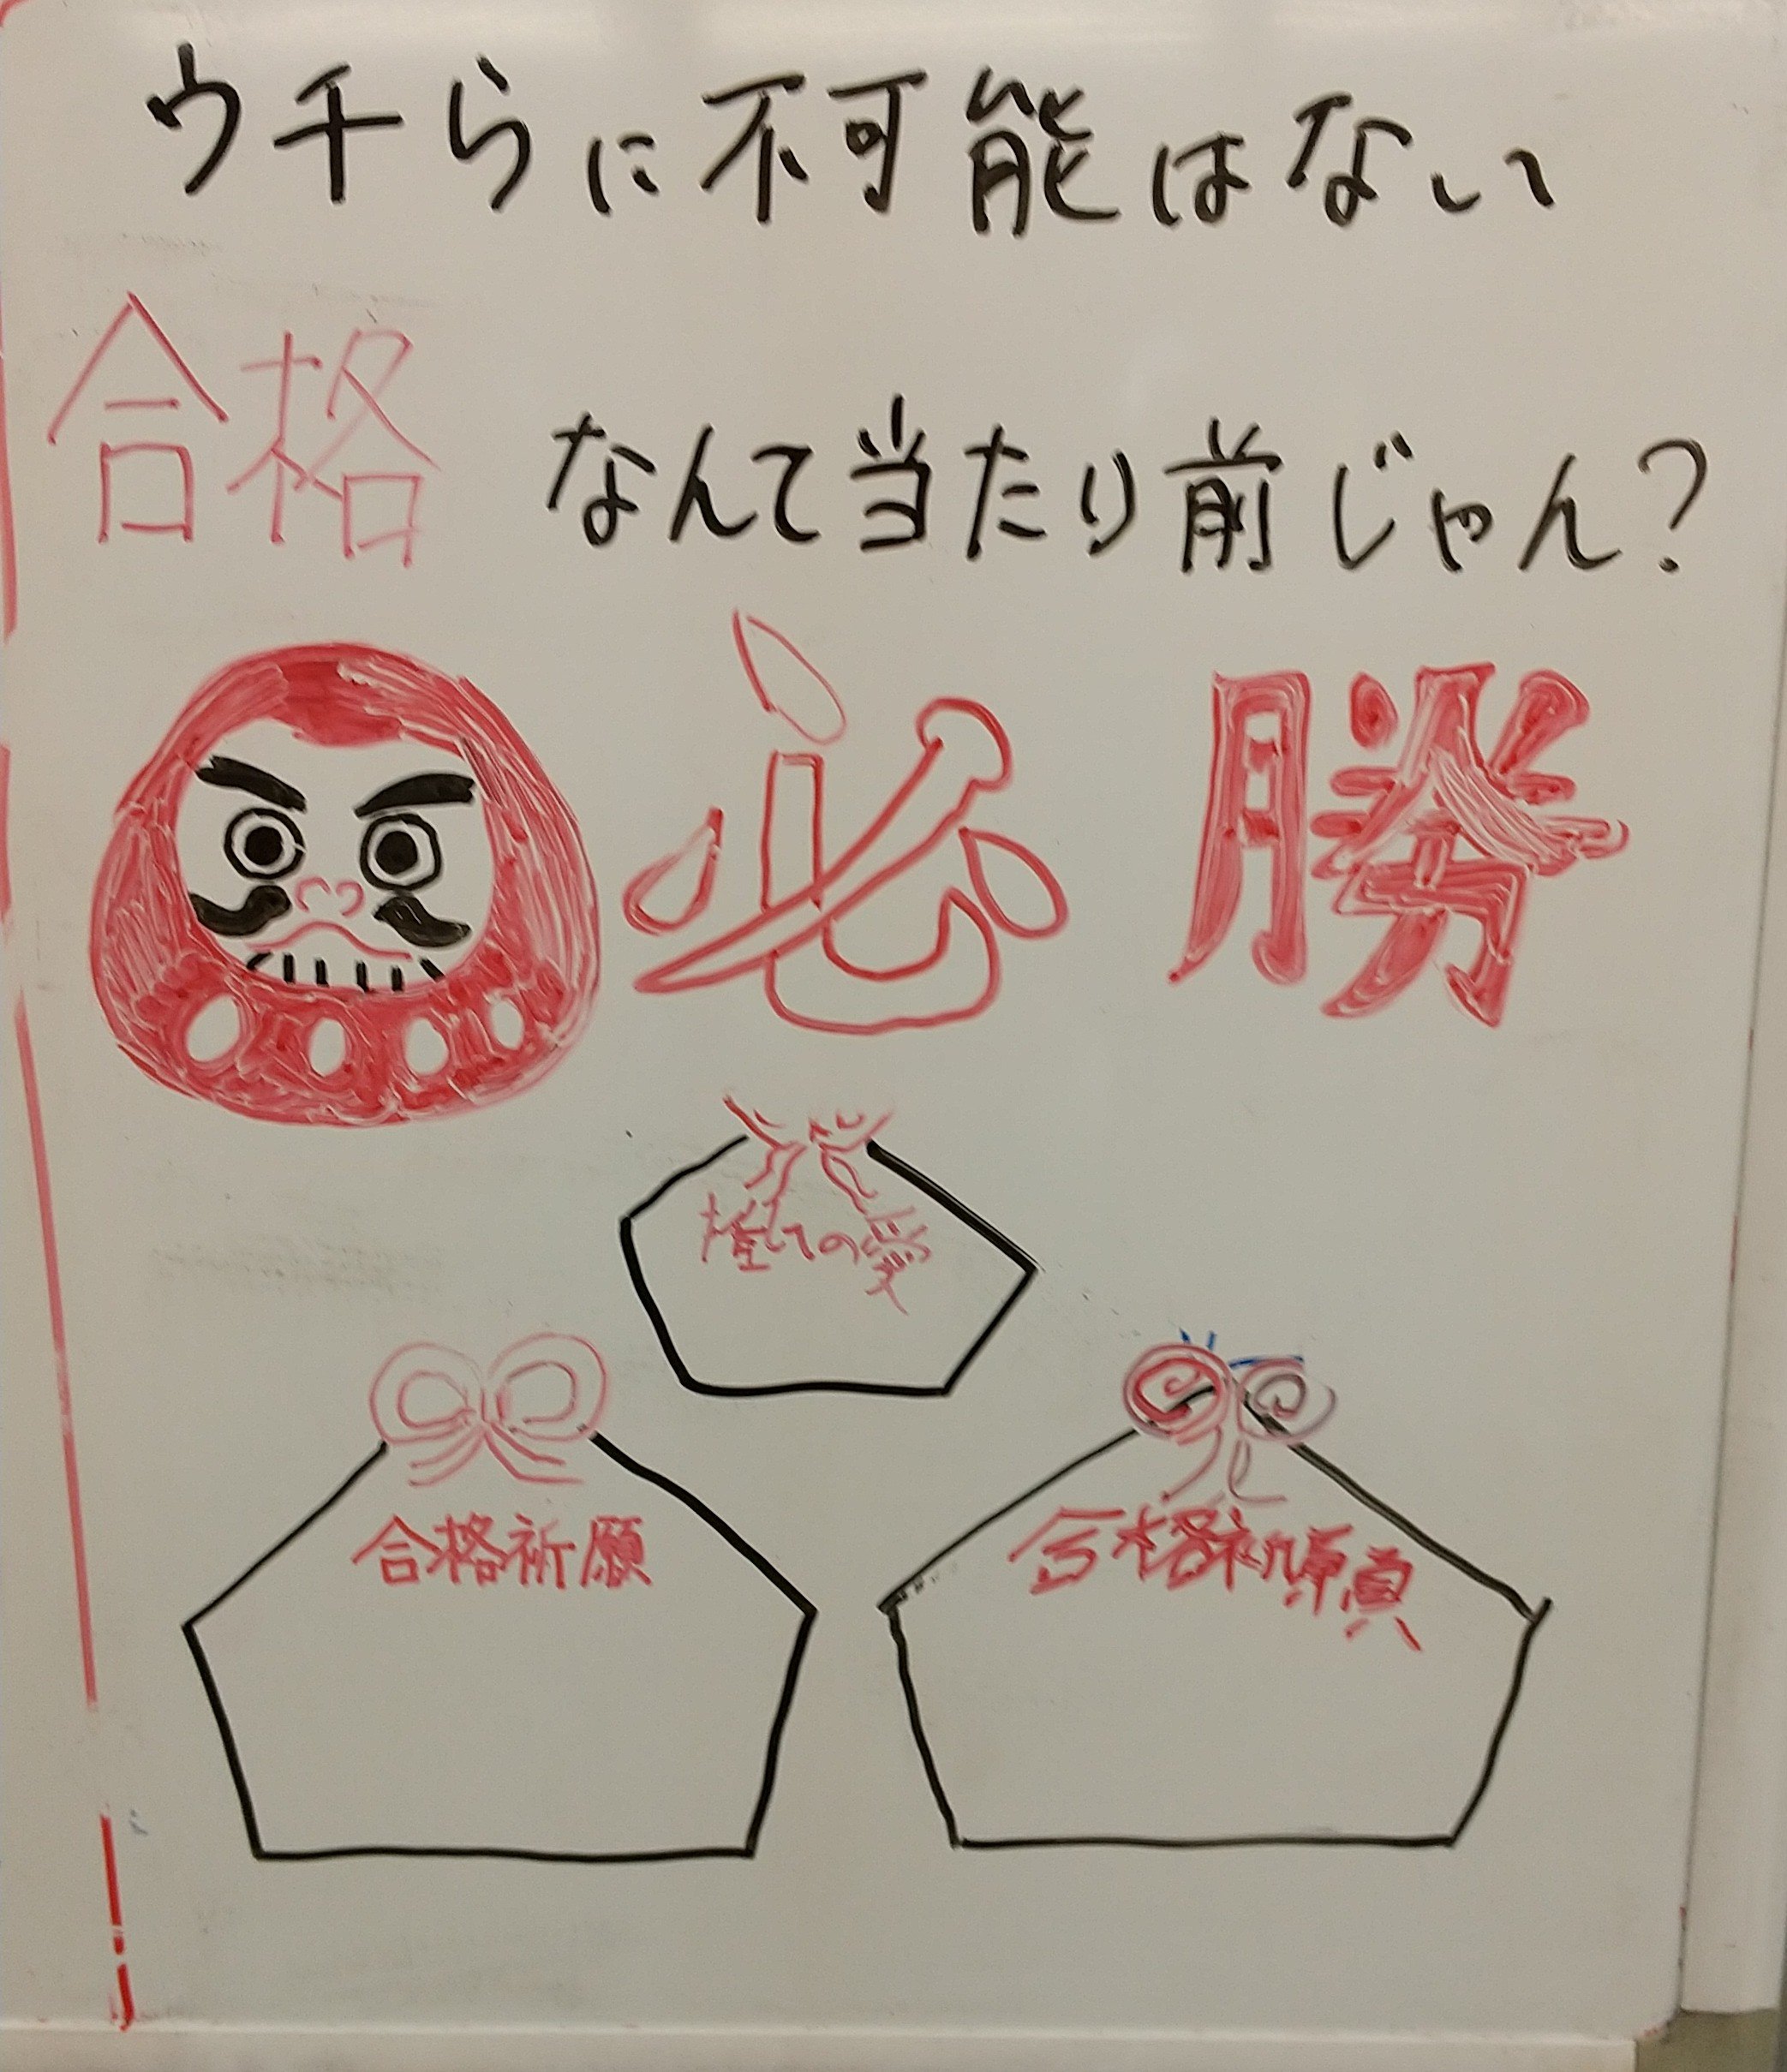 ウチらに不可能はない
合格なんて当たり前じゃん?
必勝
推しの愛
合格祈願
合格祈願